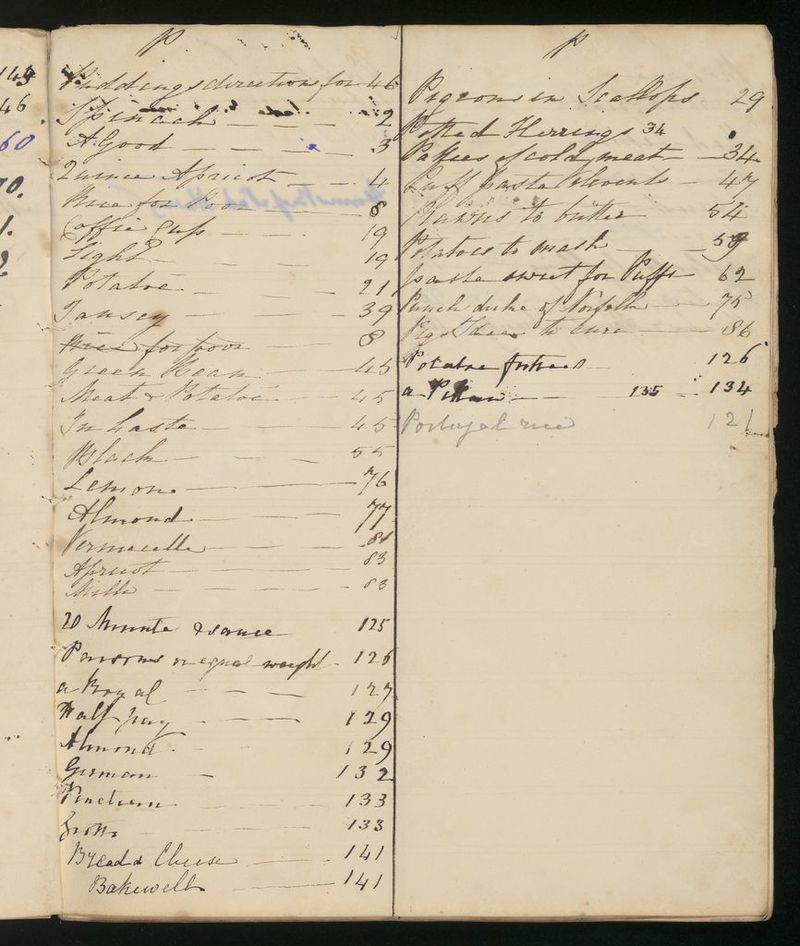 149
46
60
70.
1.
2
P.
Puddings directions for 46
Spinach 2
A Good 3
Quince Apricot 4
Rice for Poor 8
Coffee Cup 19
Light 19
Potatoe 21
Tansey 39
Rice for poor 8
Green Bean 45
Meat & Potatoe 45
In haste 45
Black 55
Lemon 76
Almond 77
Vermacelle 81
Apricot 83
Millet 83
20 Minute & sauce 125
Parsons or equal weight 126
a Royal 127
Half pay 129
Almond 129
German 132
133
133
Bread & Cheese 141
Bakewell 141
P
Pigeons in Scallops 29
Potted Herrings 34
Patties of cold meat 34
Puff paste 47
Prawns to butter 54
Potatoes to mash 59
paste sweet for Puffs 62
Punch duke of Norfolk 75
Pigs to cure 86
Potatoe 126
a 135 134
Portugal rice 121